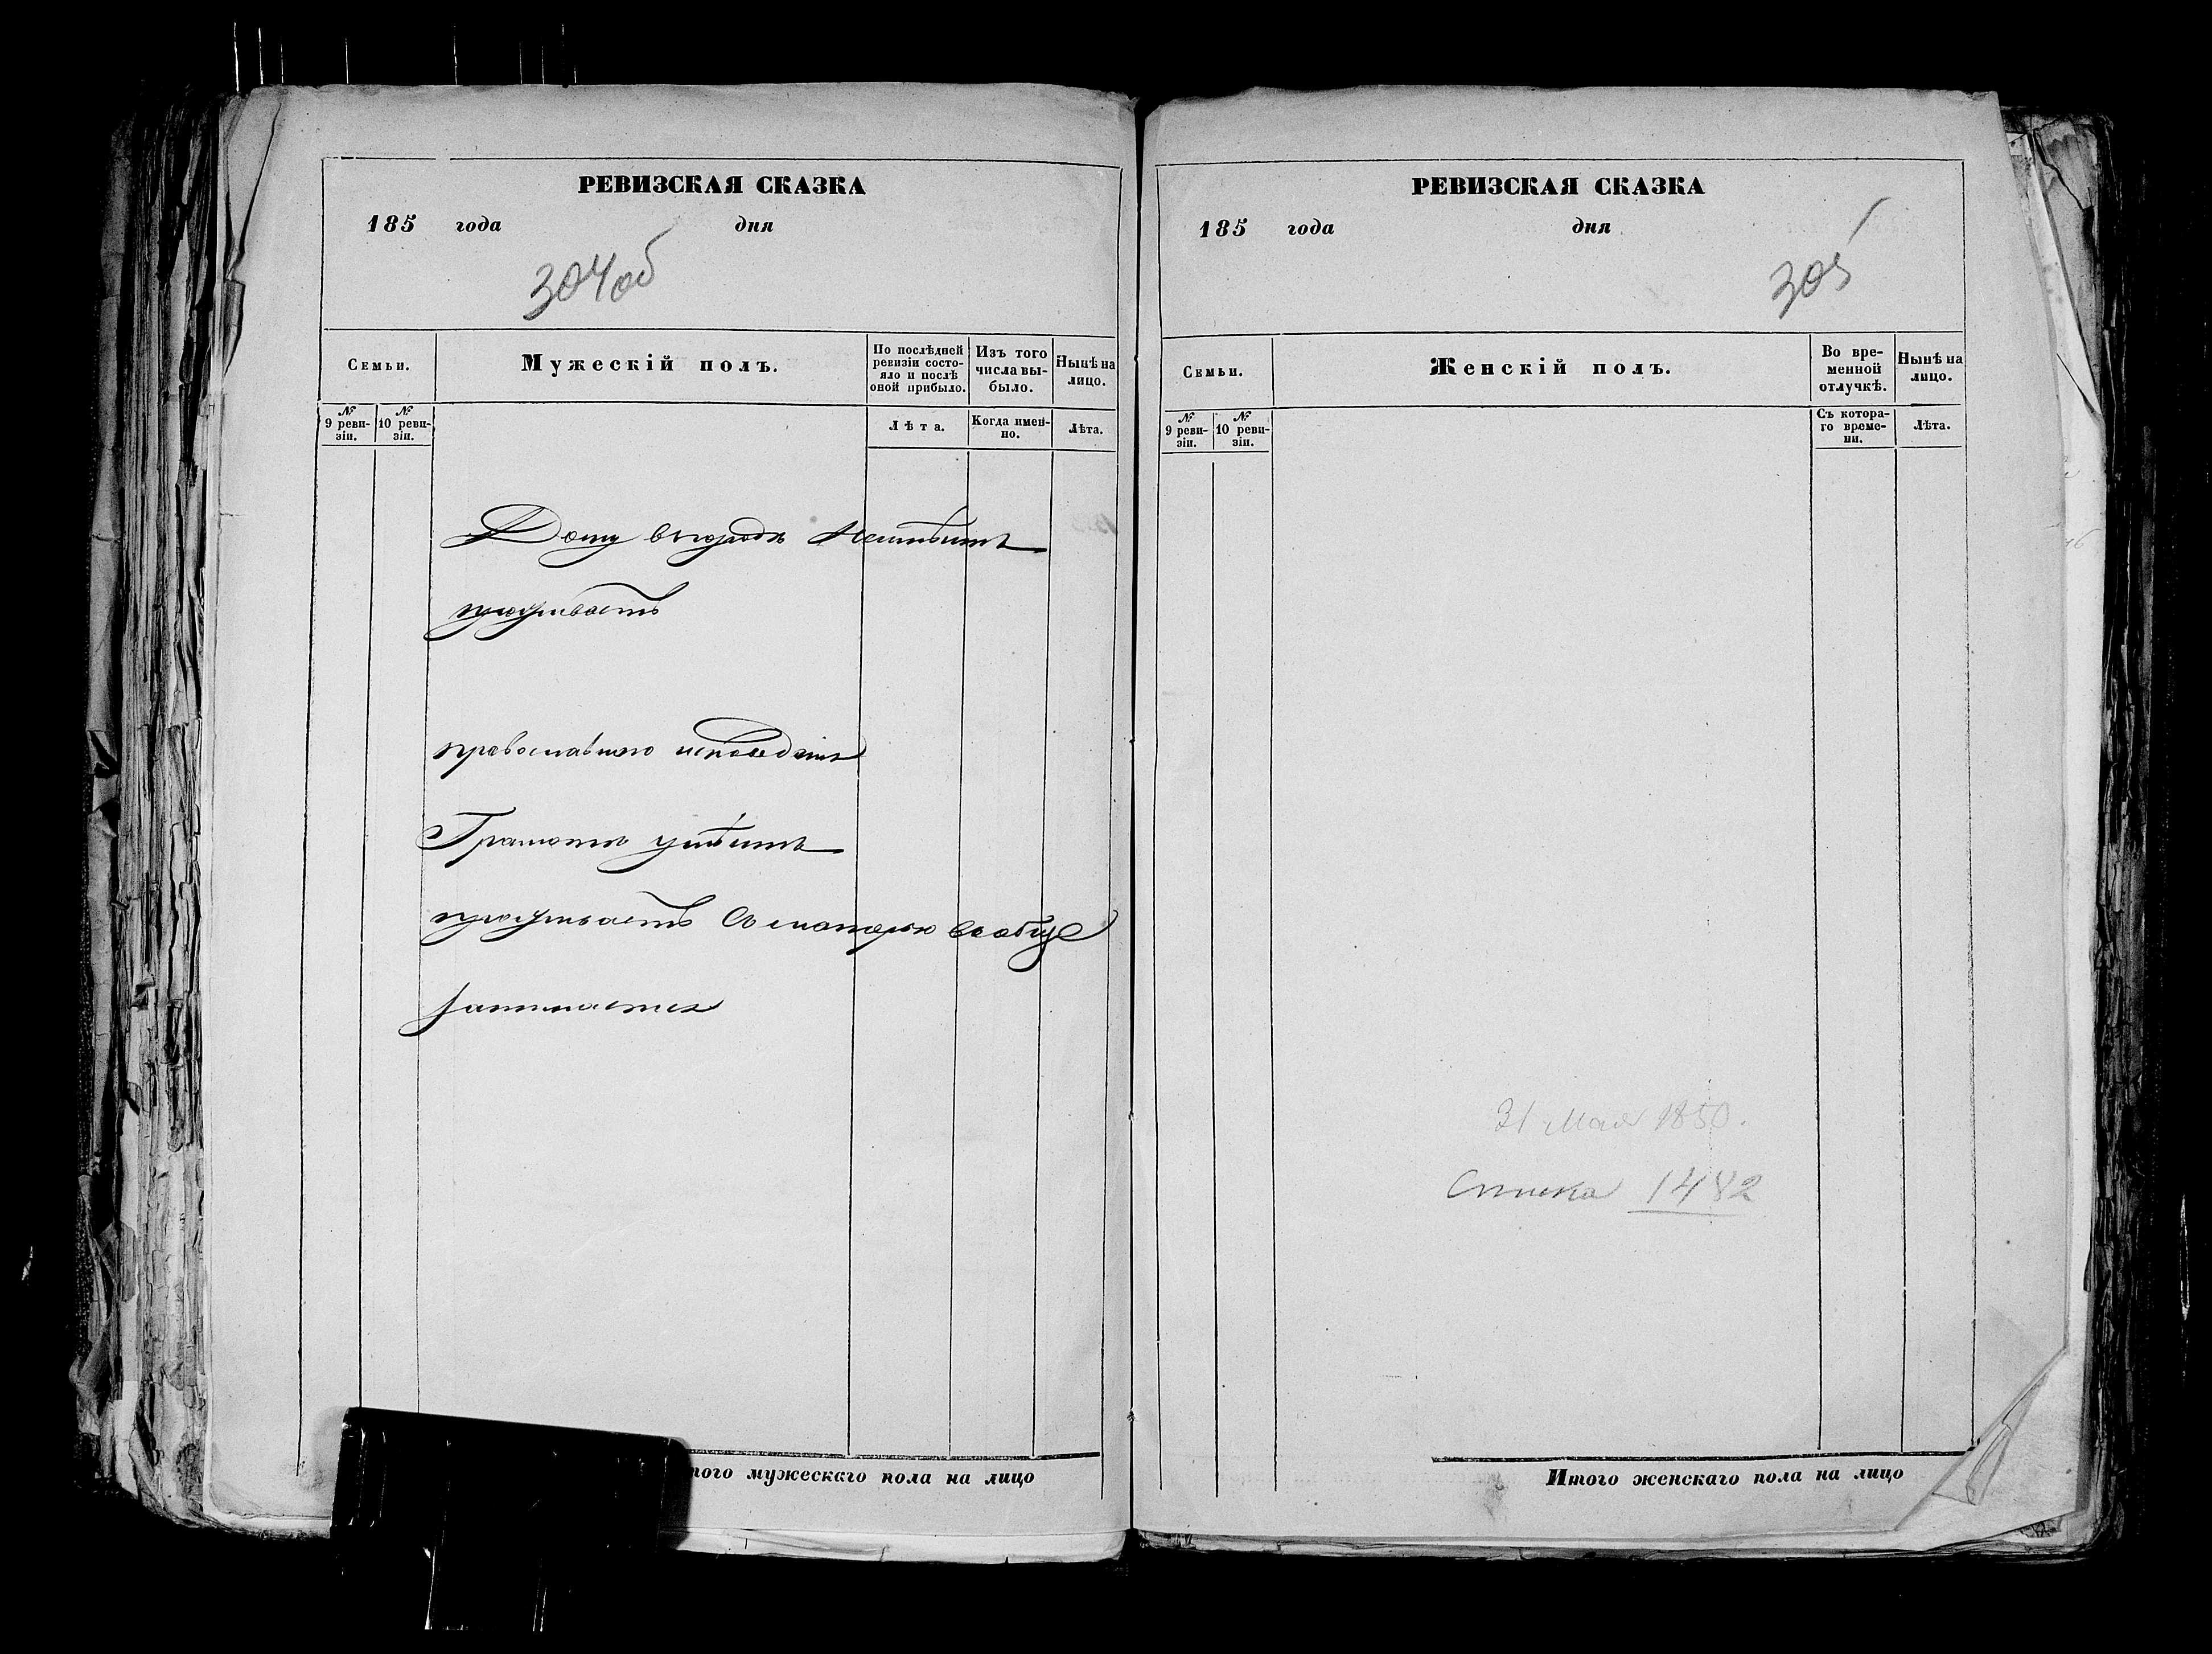 РЕВИЗСКАЯ СКАЗКА
185 года дня
304об
Семьи.
Мужескій полъ.
По послѣдней ревизіи состояло и послѣ оной прибыло.
Изъ того числа выбыло.
Нынѣ на лицо.
№ 9 реви-зіи.
№ 10 реви-зіи.
Лѣта.
Когда имен-но.
Лѣта.
Дому въ городѣ неимѣитъ
проживаетъ
православнаго исповеданія
Грамоте умѣитъ
проживаетъ Съ матерью вообще
занимается
того мужескаго пола на лицо
РЕВИЗСКАЯ СКАЗКА
185 года дня
305
Семьи.
Женскій полъ.
Во вре-менной отлучкѣ.
Нынѣ на лицо.
№ 9 реви-зіи.
№ 10 реви-зіи.
Съ котора-го време-ни.
Лѣта.
31 Мая 1850.
Списка 1482
Итого женскаго пола на лицо